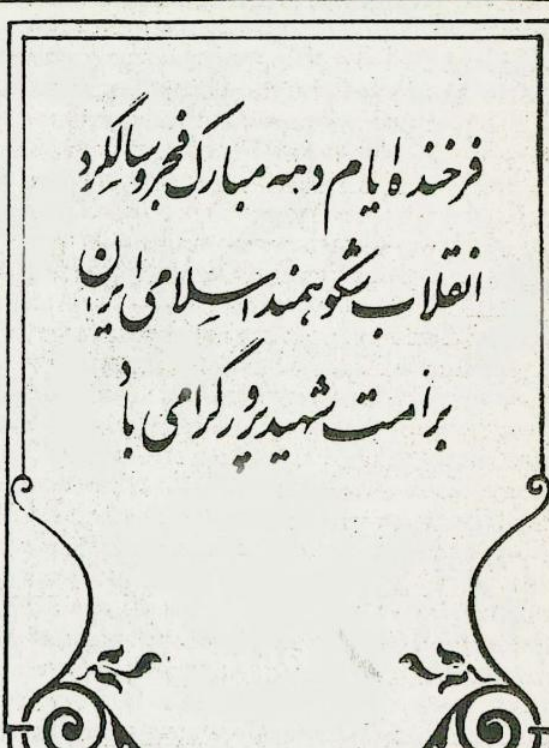 فرخنده ایام دهه مبارک فجر و سالگرد
انقلاب شکوهمند اسلامی ایران
بر امت شهیدپرور گرامی باد